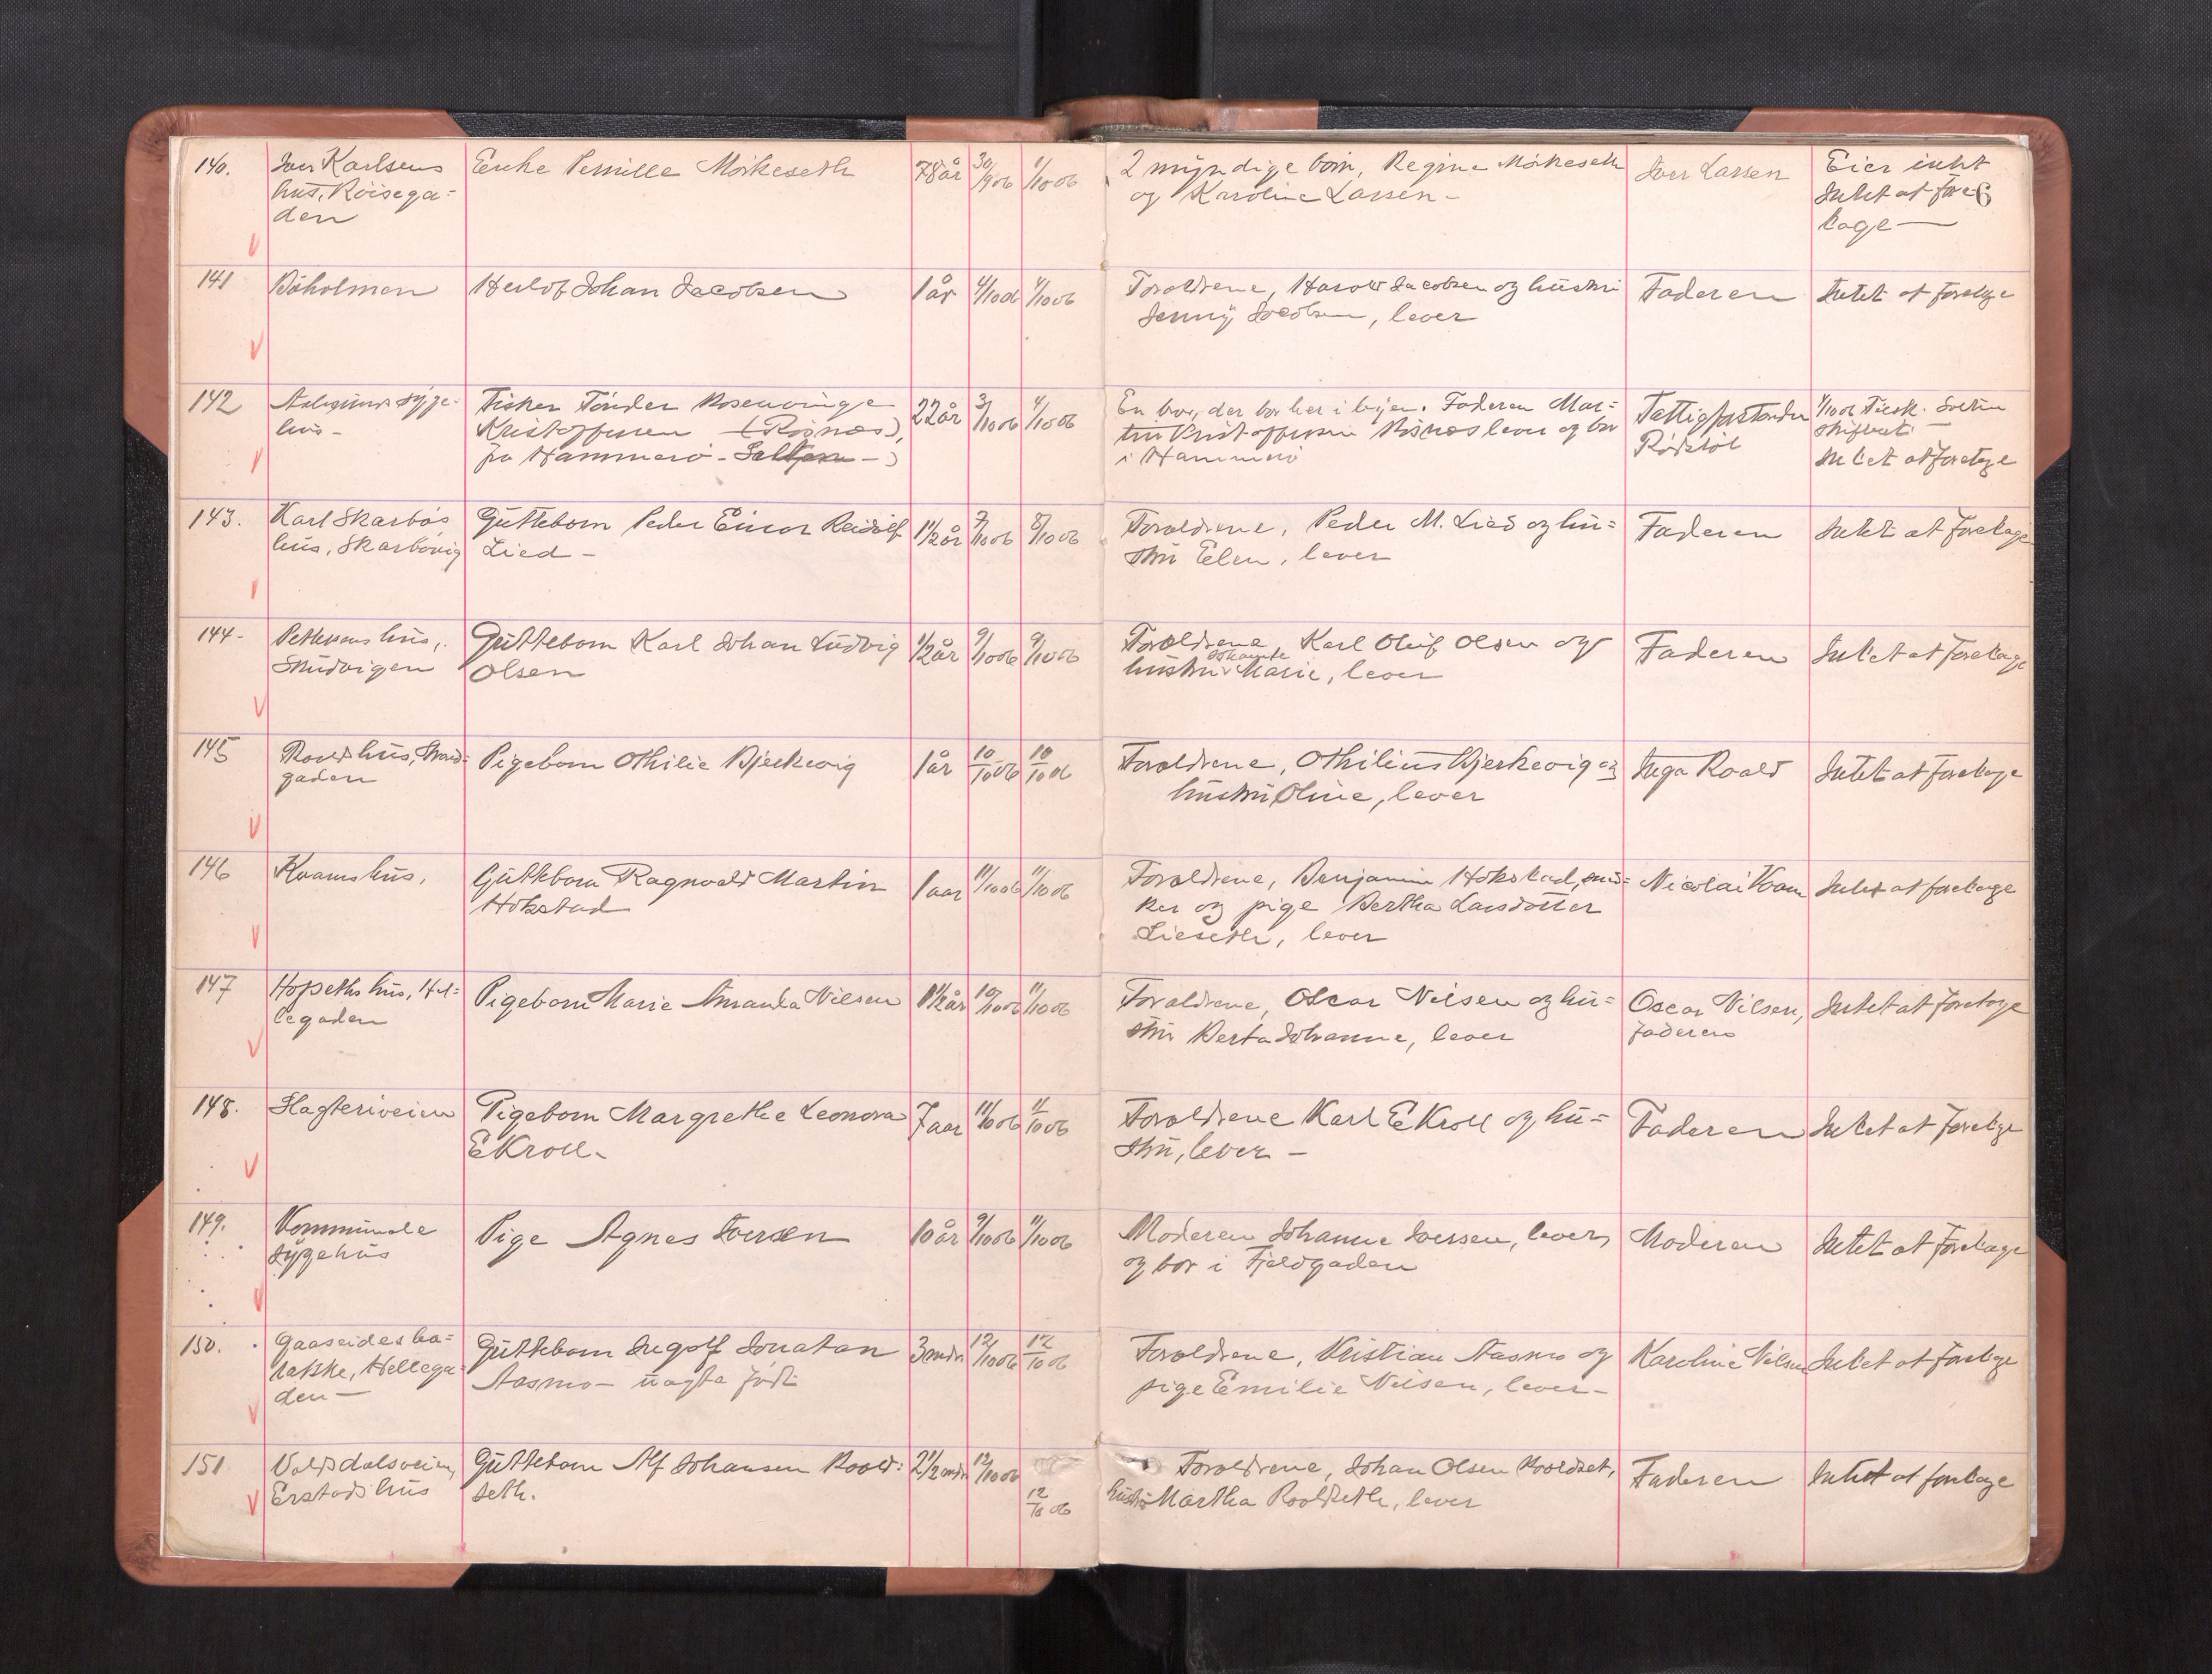 140. Iver Karlsens Enke Pernille Mørkeseth 78 år 30/9 06 1/10 06 2 myndige børn, Regine Mørkeseth Iver Larsen Eier intet
hus, Röisega= og Karoline Larsen - Intet at fore=
den tage —
141 Böholmen Herlof Johan Jacobsen 1 år 4/10 06 4/10 06 Foroldrene, Harold Jacobsen og hustru Faderen Intet at foretage
Jenny Jacobsen, lever
142 Aalesunds syge= Fisker Tönder Rosenvinge 22 år 3/10 06 4/10 06 En bror, der bor her i byen. Faderen Mar= Fattigforstander 4/10 06
hus - Kristoffersen (Risnæs), tin Kristoffersen Risnæs lever og bor Rödseth
fra Hammerö - i Hammerö Intet at foretage
143. Karl Skarbös Guttebarn Peder Einar Reidulf 1 1/2 år 7/10 06 8/10 06 Foroldrene, Peder M. Lied og hu= Faderen Intet at foretage
hus, Skarbövig Lied - stru Elen, lever
144- Pettersens hus, Guttebarn Karl Johan Ludvig 1/2 år 9/10 06 9/10 06 Foroldrene Karl Oluf Olsen og Faderen Intet at foretage
Skudvigen Olsen hustru Jokumte Marie, lever
145 Roalds hus, Strand= Pigebarn Othilie Bjerkevig 1 år 10/10 06 10/10 06 Foroldrene, Othilius Bjerkevig og Inga Roald Intet at foretage
gaden hustru Oline, lever
146 Kvams hus, Guttebarn Ragnvald Martin 1 aar 11/10 06 11/10 06 Foroldrene, Benjamin Hokstad, snid= Nicolai Kvam Intet at foretage
Hokstad ker og pige Bertha Larsdotter
Lieseth, lever
147 Hopseths hus, Hel= Pigebarn Marie Amanda Nilsen 1 1/2 år 10/10 06 11/10 06 Foroldrene, Oscar Nilsen og hu= Oscar Nilsen, Intet at foretage
legaden stru Berta Johanne, lever faderen
148. Slagteriveien Pigebarn Margrethe Leonora 7 aar 11/10 06 11/10 06 Foroldrene Karl Ekroll og hu= Faderen Intet at foretage
Ekroll - stru, lever -
149. Kommunale Pige Agnes Iversen 10 år 9/10 06 11/10 06 Moderen Johanne Iversen, lever, Moderen Intet at foretage
sygehus og bor i Fjeldgaden
150. Gaaseides ba= Guttebarn Ingolf Jonatan 3 mdr 12/10 06 12/10 06 Foroldrene, Kristian Aasmo og Karoline Nilsen Intet at foretage
rakke, Hellega= Aasmo - uægte född pige Emilie Nilsen, lever -
den —
151 Voldsdalsveien, Guttebarn Alf Johansen Roald= 2 1/2 mdr 12/10 06 12/10 06 Foroldrene, Johan Olsen Roaldset, Faderen Intet at foretage
Erstads hus seth. hustru Martha Roaldseth, lever